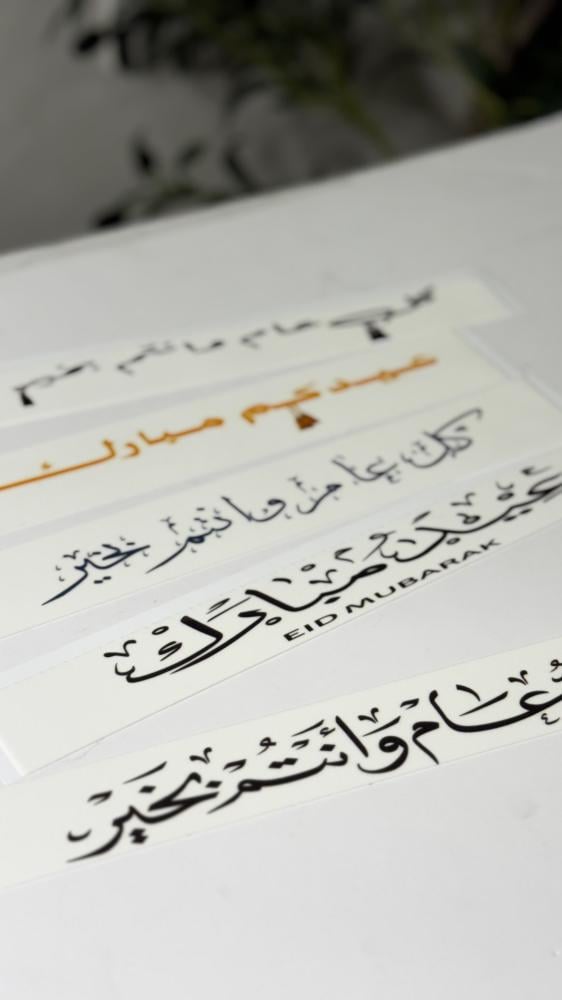 كل عام وانتم بخير
عيدكم مبارك
كل عام وانتم بخير
عيد مبارك
EID MUBARAK
عام وانتم بخير